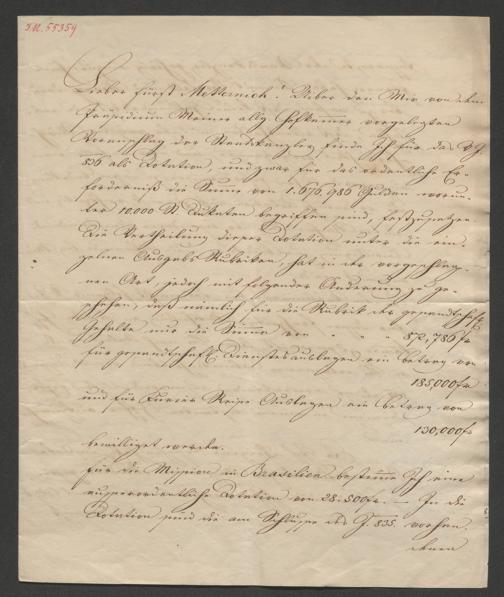 I.N. 55354
Lieber Fürst Metternich! Ueber den Mir von dem
Praesidium Meiner allg Hofkammer vorgelegten
Voranschlag der Staatskanzley finde Ich für das V.J.
836 als Dotation, und zwar für das ordentliche Er-
forderniß die Summe von 1.676,986 Gulden worun-
ter 10.000 St. Dukaten begriffen sind, festzusetzen.
Die Vertheilung dieser Dotation unter die ein-
zelnen Ausgabs Rubriken, hat in der vorgeschlage-
nen Art, jedoch mit folgender Änderung zu ge-
schehen, daß nämlich für die Rubrik der gesandtschftl
Gehalte nur die Summe von - " - " 872,786 fr
für gesandtschaftl Dienstesauslagen ein Betrag von
185,000 fr
und für Kurier Reise Auslagen ein Betrag von
130,000 fr
bewilliget werden.
Für die Mission in Brasilien bestimme Ich eine
außerordentliche Dotation von 28.500 fr. — In die
Dotation sind die am Schluße des J. 835. vorhan-
denen